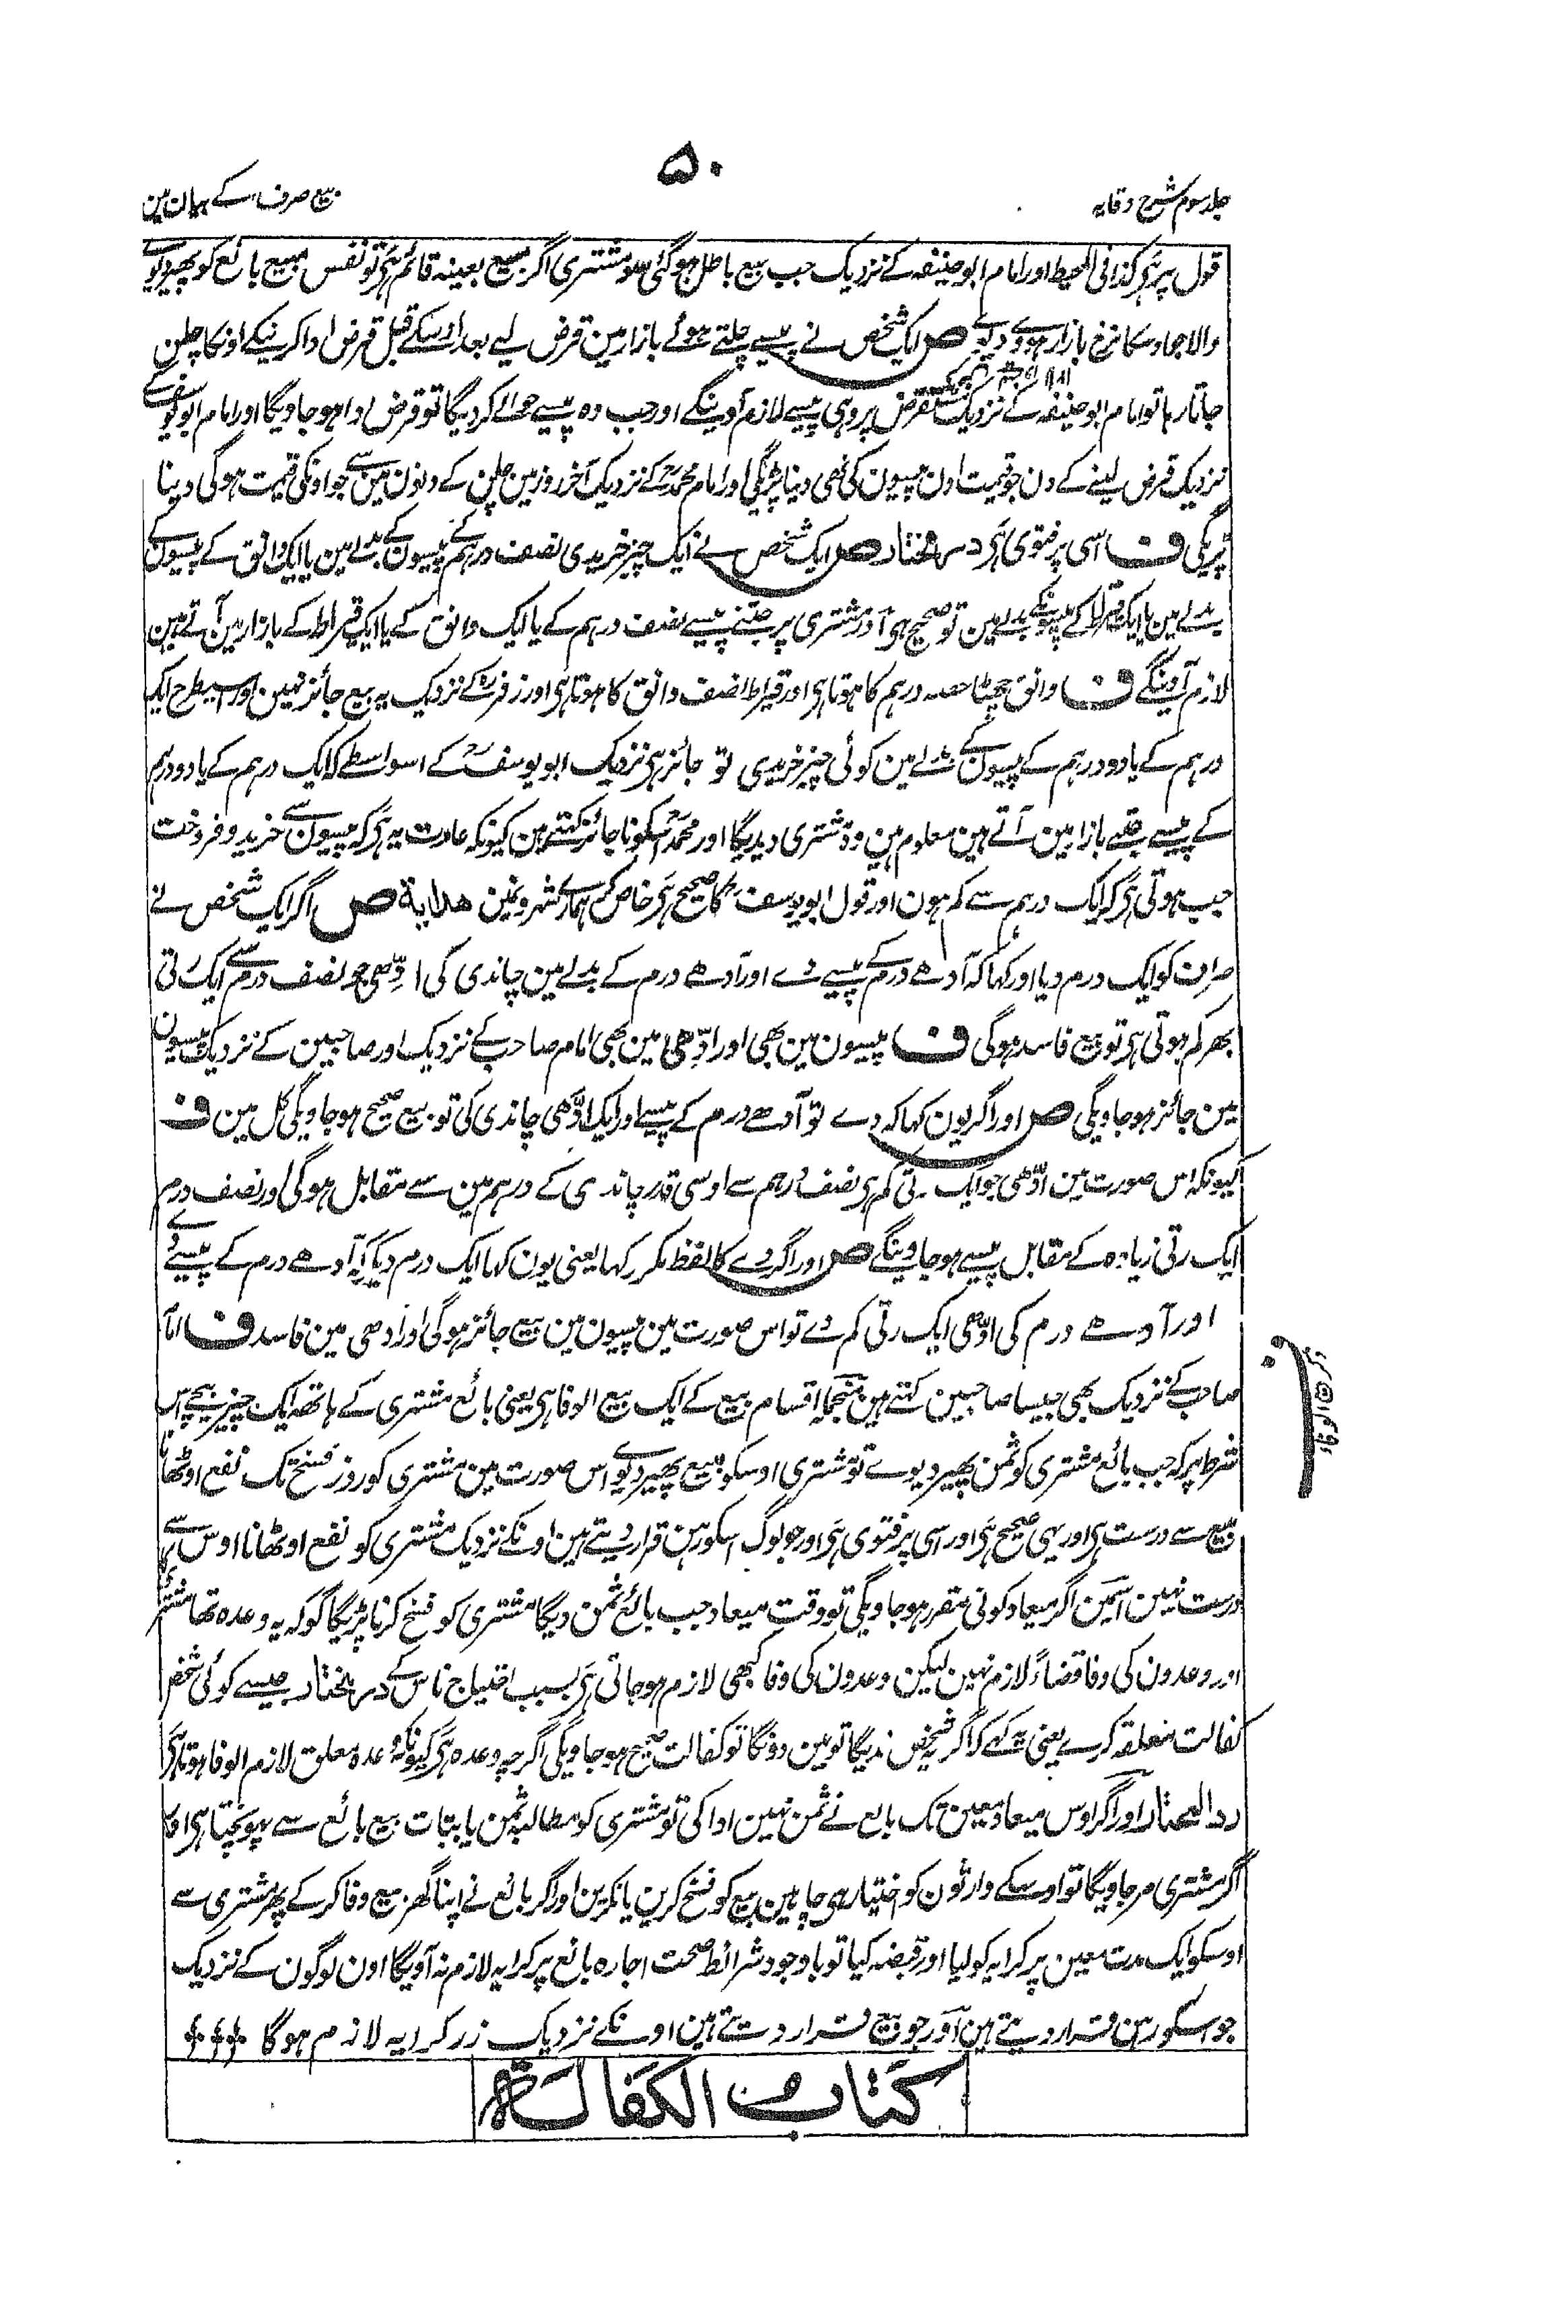 ۵۰
جلد سوم شرح وقایہ
بیع صرف کے بیان مین
قول پر ہی کذا فی المحیط اور امام ابو حنیفہ کے نزدیک جب بیع باطل ہوگئی سو مشتری اگر مبیع بعینہ قائم ہی تو نفس مبیع بائع کو پھیر دیوے
والا جو اوسکا نرخ بازار ہووے دیوے ص ایک شخص نے پیسے چلتے ہوئے بازار مین قرض لیے بعد اوسکے قبل قرض ادا کرنیکے اونکا چلن
جاتا رہا تو امام ابو حنیفہ کے نزدیک مستقرض پر وہی پیسے لازم آوینگے اور جب وہ پیسے حوالے کردیگا تو قرض ادا ہو جاویگا اور امام ابو یوسف کے
نزدیک قرض لینے کے دن جو قیمت اون پیسون کی تھی دینا پڑیگی اور امام محمدؒ کے نزدیک آخر روز مین چلن کے دنون مین سے جو اونکی قیمت ہوگی دینا
پڑیگی ف اسی پر فتوی ہی در مختار ص ایک شخص نے ایک چیز خریدی نصف درہم کے پیسون کے بدلے مین یا ایک دانق کے پیسون کے
بدلے مین یا ایک قیراط کے پیسونکے بدلے مین تو صحیح ہی اور مشتری پر جتنے پیسے نصف درہم کے یا ایک دانق کے یا ایک قیراط کے بازار مین آتے ہین
لازم آوینگے ف دانق چھٹا حصہ درہم کا ہوتا ہی اور قیراط نصف دانق کا ہوتا ہی اور زفرؒ کے نزدیک یہ بیع جائز نہین اور اسیطرح ایک
درہم کے یا دو درہم کے پیسون کے بدلے مین کوئی چیز خریدی تو جائز ہی نزدیک ابو یوسفؒ کے اسواسطے کہ ایک درہم کے یا دو درہم
کے پیسے جتنے بازار مین آتے ہین معلوم ہین وہ مشتری دیدیگا اور محمدؒ اسکو ناجائز کہتے ہین کیونکہ عادت یہ ہی کہ پیسون سے خرید و فروخت
جب ہوتی ہی کہ ایک درہم سے کم ہون اور قول ابو یوسفؒ کا صحیح ہی خاص کر ہمارے شہرونمین ھدایة ص اگر ایک شخص نے
صراف کو ایک درم دیا اور کہا کہ آدھے درم کے پیسے دے اور آدھے درم کے بدلے مین چاندی کی ادّھی جو نصف درم سے ایک رتی
بھر کم ہوتی ہی تو بیع فاسد ہوگی ف پیسون مین بھی اور ادّھی مین بھی امام صاحب کے نزدیک اور صاحبین کے نزدیک پیسون
مین جائز ہو جاویگی ص اور اگر یون کہا کہ دے تو آدھے درم کے پیسے اور ایک ادّھی چاندی کی تو بیع صحیح ہو جاویگی کل مین ف
کیونکہ اس صورت مین ادّھی جو ایک رتی کم ہی نصف درہم سے اوسی قدر چاندی کے درہم مین سے مقابل ہوگی اور نصف درم
ایک رتی زیادہ کے مقابل پیسے ہو جاوینگے ص اور اگر دے کا لفظ مکرر کہا یعنی یون کہا ایک درم دیکر آدھے درم کے پیسے دے
اور آدھے درم کی ادّھی ایک رتی کم دے تو اس صورت مین پیسون مین بیع جائز ہوگی اور ادھی مین فاسد ف امام
صاحب کے نزدیک بھی جیسا صاحبین کہتے ہین منجملہ اقسام بیع کے ایک بیع الوفا ہی یعنی بائع مشتری کے ہاتھ ایک چیز بیچے اس
شرط پر کہ جب بائع مشتری کو ثمن پھیر دیوے تو مشتری اوسکو مبیع پھیر دیوے اس صورت مین مشتری کو روز فسخ تک نفع اوٹھانا
مبیع سے درست ہی اور یہی صحیح ہی اور اسی پر فتوی ہی اور جو لوگ اسکو رہن قرار دیتے ہین اونکے نزدیک مشتری کو نفع اوٹھانا اوس سے
درست نہین اسمین اگر میعاد کوئی مقرر ہو جاویگی تو وقت میعاد جب بائع ثمن دیگا مشتری کو فسخ کرنا پڑیگا گو کہ یہ وعدہ تھا
اور وعدون کی وفا قضاءً لازم نہین لیکن وعدون کی وفا کبھی لازم ہو جاتی ہی بسبب احتیاج ناس کے در مختار جیسے کوئی شخص
کفالت معلقہ کرے یعنی یہ کہے کہ اگر یہ شخص ندیگا تو مین دونگا تو کفالت صحیح ہو جاویگی اگرچہ وعدہ ہی کیونکہ وعدہ معلق لازم الوفا ہوتا ہی
رد المحتار اور اگر اوس میعاد معین تک بائع نے ثمن نہین ادا کی تو مشتری کو مطالبہ ثمن یا بتات بیع بائع سے پہونچتا ہی
اگر مشتری مر جاویگا تو اوسکے وارثون کو اختیار ہی چاہین بیع کو فسخ کرین یا نکرین اور اگر بائع نے اپنا گھر بیع وفا کر کے پھر مشتری سے
اوسکو ایک مدت معین پر کرایہ کو لیا اور قبضہ کیا تو باوجود شرائط صحت اجارہ بائع پر کرایہ لازم نہ آویگا اون لوگون کے نزدیک
جو اسکو رہن قرار دیتے ہین اور جو بیع قرار دیتے ہین اونکے نزدیک زر کرایہ لازم ہوگا
کتاب الکفالة